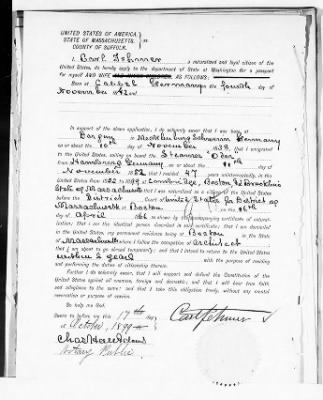 UNITED STATES OF AMERICA,
STATE OF MASSACHUSETTS,
COUNTY OF SUFFOLK.
I Carl Fehmer a naturalized and loyal citizen of the
United States, do hereby apply to the department of State at Washington for a passport
for myself AND WIFE AS FOLLOWS:
Born at Cassel Germany on fourth day of
November
In support of the above application, I do solemnly swear that I was born at
Dargun in Mecklenburg Schwerin Germany
on or about the 10th day of November 1838, that I emigrated
to the United States, sailing on board the Steamer Oder from
Hamburg Germany on or about the day of
November 1852 that I resided 47 years uninterruptedly, in the
United States, from 1852 to 1899 at Cambridge, Boston, & Brookline
State of Massachusetts that I was naturalized as a citizen of the United States
before the District Court of United States for District of
Massachusetts at Boston on the 26th
day of April 1866 as shown by the accompanying certificate of naturali-
zation; that I am the identical person described in said certificate; that I am domiciled
in the United States, my permanent residence being at Boston in the State
of Massachusetts where I follow the occupation of architect
that I am about to go abroad temporarily; and that I intend to return to the United States
within 2 years with the purpose of residing
and performing the duties of citizenship therein.
Further I do solemnly swear, that I will support and defend the Constitution of the
United States against all enemies, foreign and domestic; and that I will bear true faith
and allegiance to the same; and that I take this obligation freely, without any mental
reservation or purpose of evasion.
So help me God.
Sworn to before me this 17th day
of October, 1899
Carl Fehmer
Chas Hall Adams
Notary Public.